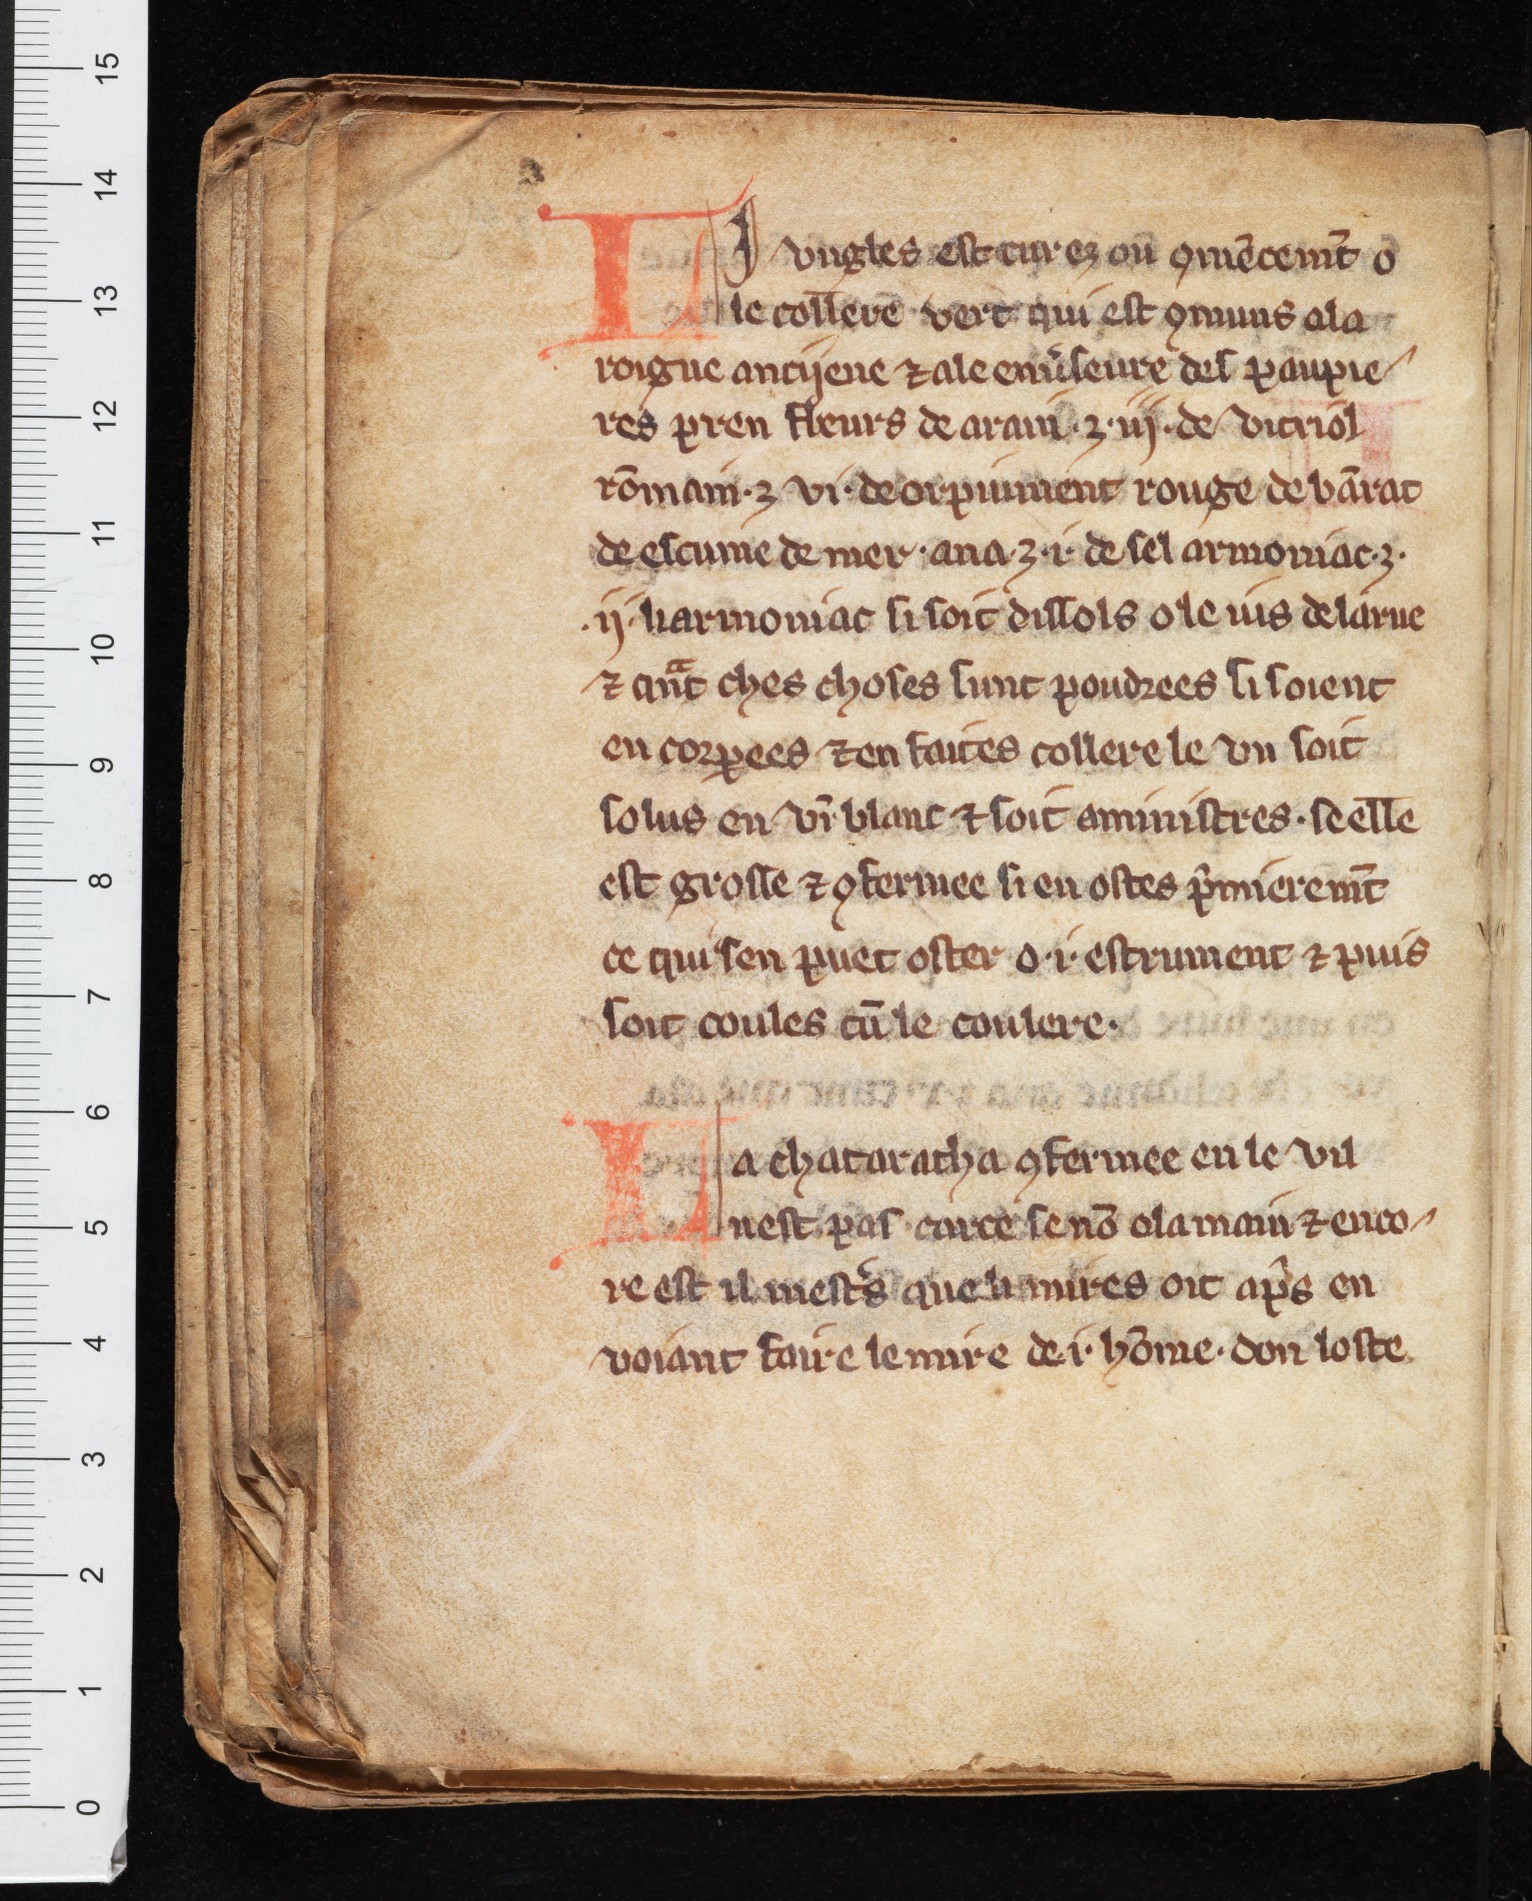 LI vngles est curez ou ꝯmēcem̄t o
le coll̄ere vert qui est ꝯmuns ala
roigne ancijene ⁊ ale enu̾seure des paupie
res pren fleurs de arain ·ʒ· iij · de vitriol
rōmain · ʒ vi · de orpiument rouge de bārac
de escume de mer · ana · ʒ · i · de sel armoniac · ʒ ·
· ij · larmoniac si soit dissols o le ius de la rue
⁊ qn̄t ches choses sunt poudrees si soient
en corpees ⁊ en faites collere le vn soit
solus en vī blanc ⁊ soit aministres · se elle
est grosse ⁊ ꝯfermee si en ostes p̄mierem̄t
ce qui sen puet oster o · i · estrument ⁊ puis
soit coules cū le coulere ·
La chataratha ꝯfermee en le vil
nest pas curee se nō o la main ⁊ enco
re est il mest̾s que li mires oit ap̄s en
voiant faire le mire de · i · hōme · don loste